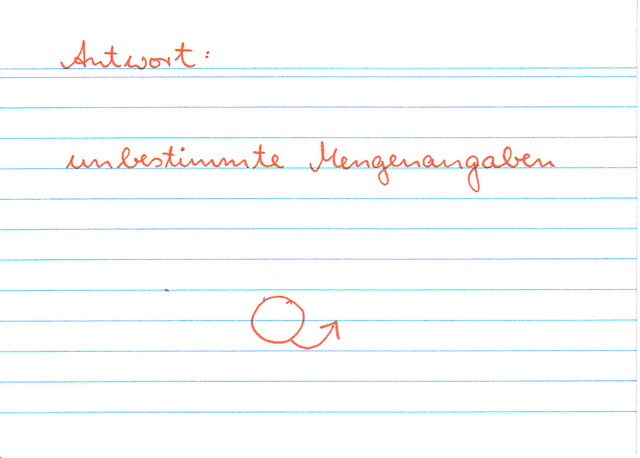 Antwort:
unbestimmte Mengenangaben